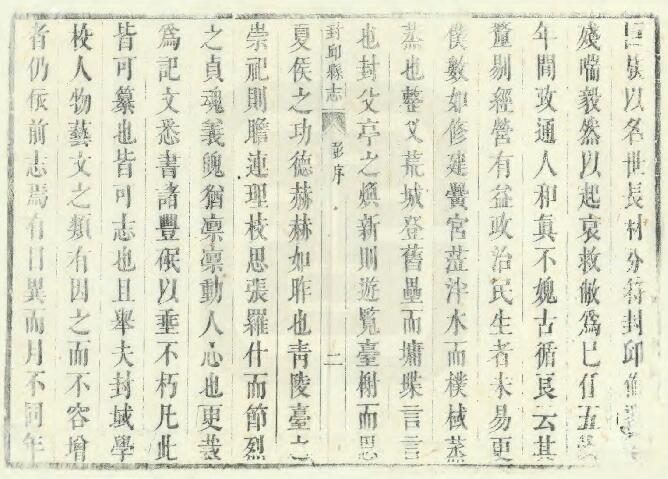 以名世長材分符封邱
殘喘毅然以起衰救敝為己任五
年間政通人和真不媿古循良云其
釐剔經營有益政治民生者未易更
僕數如修建黌宮蒞泮水而樸棫蒸
蒸也整乂荒城登舊壘而墉堞言言
也封父亭之煥新則遊覽臺榭而思
封邱縣志 彭序 二
夏侯之功德赫赫如昨也青陵臺之
崇祀則瞻連理枝思張羅什而節烈
之貞魂義魄猶凛凛動人心也更裁
為記文悉書諸豐碑以垂不朽凡此
皆可纂也皆可志也且舉夫封域學
校人物藝文之類有因之而不容增
者仍依前志焉有日異而月不同年